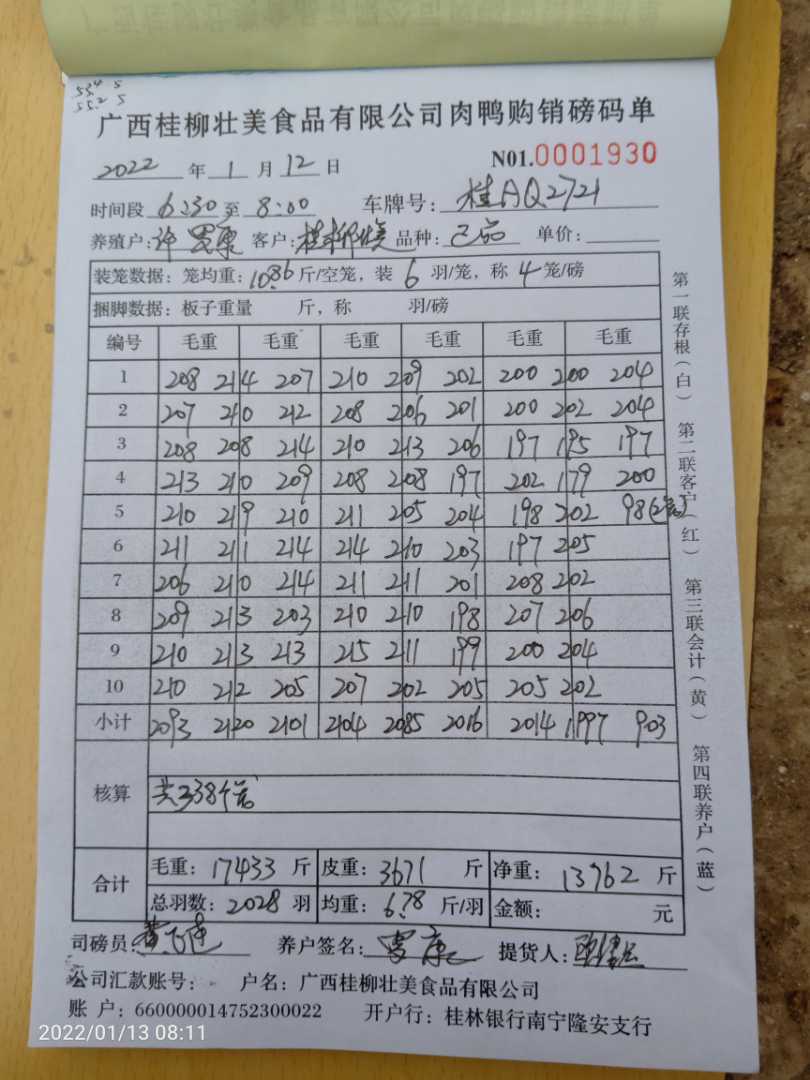 534 5
552 5
广西桂柳壮美食品有限公司肉鸭购销磅码单
2022 年 1 月 12 日 N01.0001930
时间段 6:30 至 8:00 车牌号: 桂AQ2721
养殖户: 许 客户: 桂柳 品种: 单价:
装笼数据: 笼均重: 10.86 斤/空笼, 装 6 羽/笼, 称 4 笼/磅
捆脚数据: 板子重量 斤, 称 羽/磅
编号 毛重 毛重 毛重 毛重 毛重 毛重
1 208 214 207 210 209 202 200 200 204
2 207 210 212 208 206 201 200 202 204
3 208 208 214 210 213 206 197 195 197
4 213 210 209 208 208 197 202 179 200
5 210 219 210 211 205 204 198 202 98
6 211 211 214 214 210 203 197 205
7 206 210 214 211 211 201 208 202
8 209 213 203 210 210 198 207 206
9 210 213 213 215 211 199 200 204
10 210 212 205 207 202 205 205 202
小计 2093 2120 2101 2104 2085 2016 2014 1997 903
核算 共338个
合计 毛重: 17433 斤 皮重: 3671 斤 净重: 13762 斤
总羽数: 2028 羽 均重: 6.78 斤/羽 金额: 元
司磅员: 养户签名: 提货人:
公司汇款账号: 户名: 广西桂柳壮美食品有限公司
账 户: 660000014752300022 开户行: 桂林银行南宁隆安支行
第一联存根(白) 第二联客户(红) 第三联会计(黄) 第四联养户(蓝)
2022/01/13 08:11